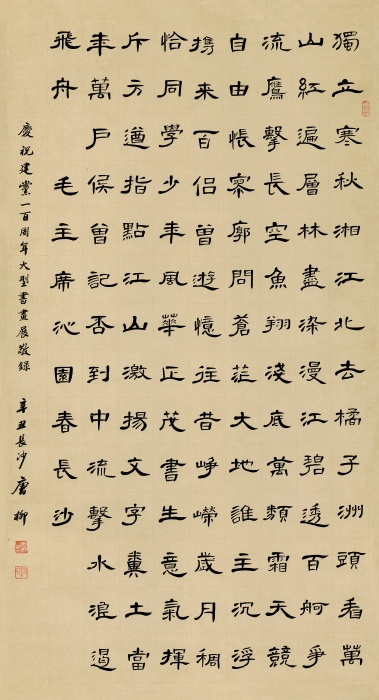 獨立寒秋湘江北去橘子洲頭看萬
山紅遍層林盡染漫江碧透百舸爭
流鷹擊長空魚翔淺底萬類霜天競
自由悵寥廓問蒼茫大地誰主沉浮
携来百侶曾遊憶往昔崢嶸歲月稠
恰同學少年風華正茂書生意氣揮
斥方遒指點江山激揚文字糞土當
年萬戶侯曾記否到中流擊水浪遏
飛舟 毛主席沁園春長沙
慶祝建黨一百周年大型書畫展敬錄 辛丑長沙 唐柳